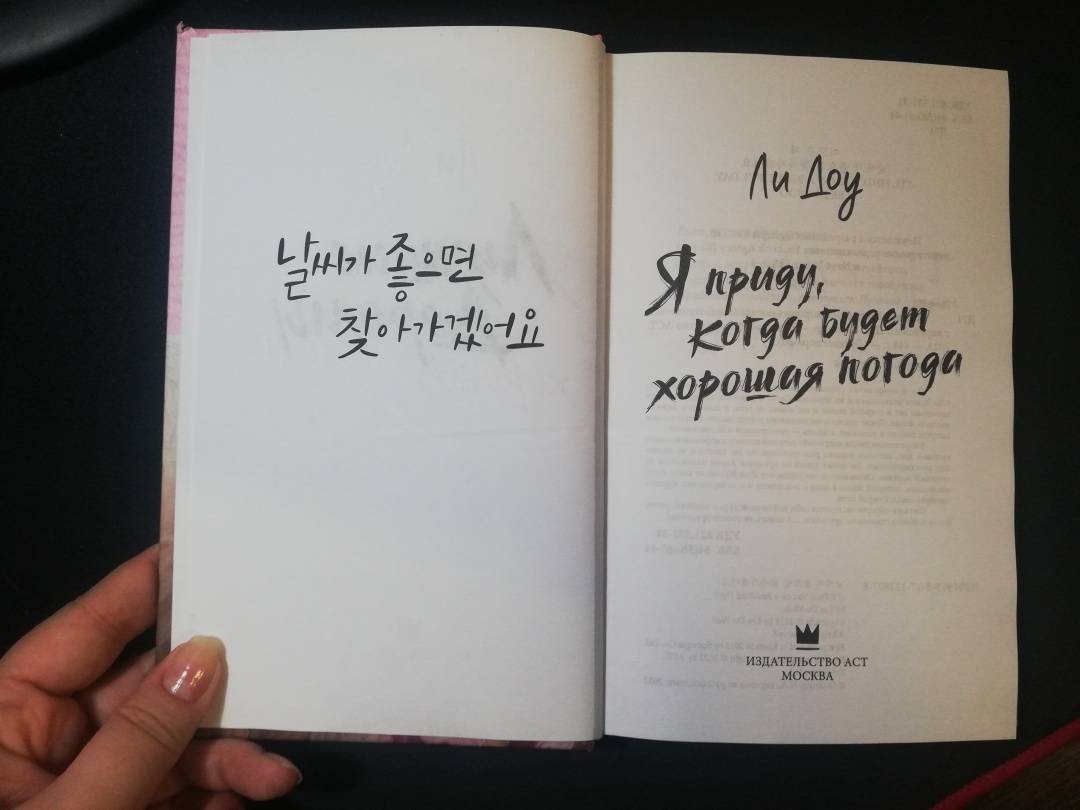 날씨가 좋으면
찾아가겠어요
Ли Доу
Я приду,
когда будет
хорошая погода
ИЗДАТЕЛЬСТВО АСТ
МОСКВА